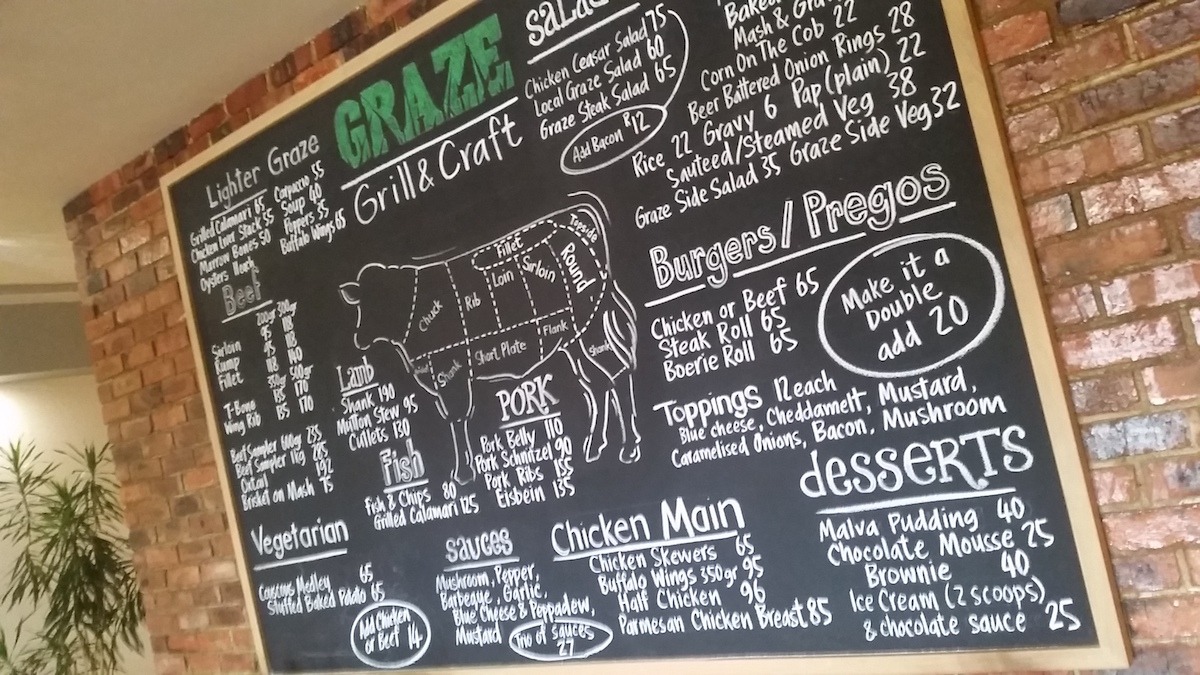 GRAZE
Grill & Craft
Lighter Graze
Grilled Calamari 65 Carpaccio 55
Chicken Liver Stack 55 Soup 40
Marrow Bones 50 Poppers 55
Oysters Buffalo Wings 65
Beef
200gr 300gr
Sirloin 95 118
Rump 95 118
Fillet 118 140
350gr 500gr
T-Bone 135 170
Wing Rib 135 170
Beef Sampler 600gr 235
Beef Sampler 1kg 285
Oxtail 192
Brisket on Mash 75
Vegetarian
Couscous Medley 65
Stuffed Baked Potato 65
Add Chicken
or Beef 14
Chuck
Rib
Fillet
Loin
Sirloin
Topside
Round
Flank
Short Plate
Shank
Shank
Lamb
Shank 190
Mutton Stew 95
Cutlets 130
Fish
Fish & Chips 80
Grilled Calamari 125
PORK
Pork Belly 110
Pork Schnitzel 90
Pork Ribs 155
Eisbein 135
sauces
Mushroom, Pepper,
Barbeque, Garlic,
Blue Cheese & Peppadew,
Mustard
Trio of sauces
27
Chicken Main
Chicken Skewers 65
Buffalo Wings 350gr 95
Half Chicken 96
Parmesan Chicken Breast 85
Chicken Ceasar Salad 75
Local Graze Salad 60
Graze Steak Salad 65
Add Bacon R12
Mash &
Corn On The Cob 22
Beer Battered Onion Rings 28
Rice 22 Gravy 6 Pap (plain) 22
Sauteed/Steamed Veg 38
Graze Side Salad 35 Graze Side Veg 32
Burgers / Pregos
Chicken or Beef 65
Steak Roll 65
Boerie Roll 65
Make it a
Double
add 20
Toppings 12 each
Blue cheese, Cheddamelt, Mustard,
Caramelised Onions, Bacon, Mushroom
desserts
Malva Pudding 40
Chocolate Mousse 25
Brownie 40
Ice Cream (2 scoops)
& chocolate sauce 25